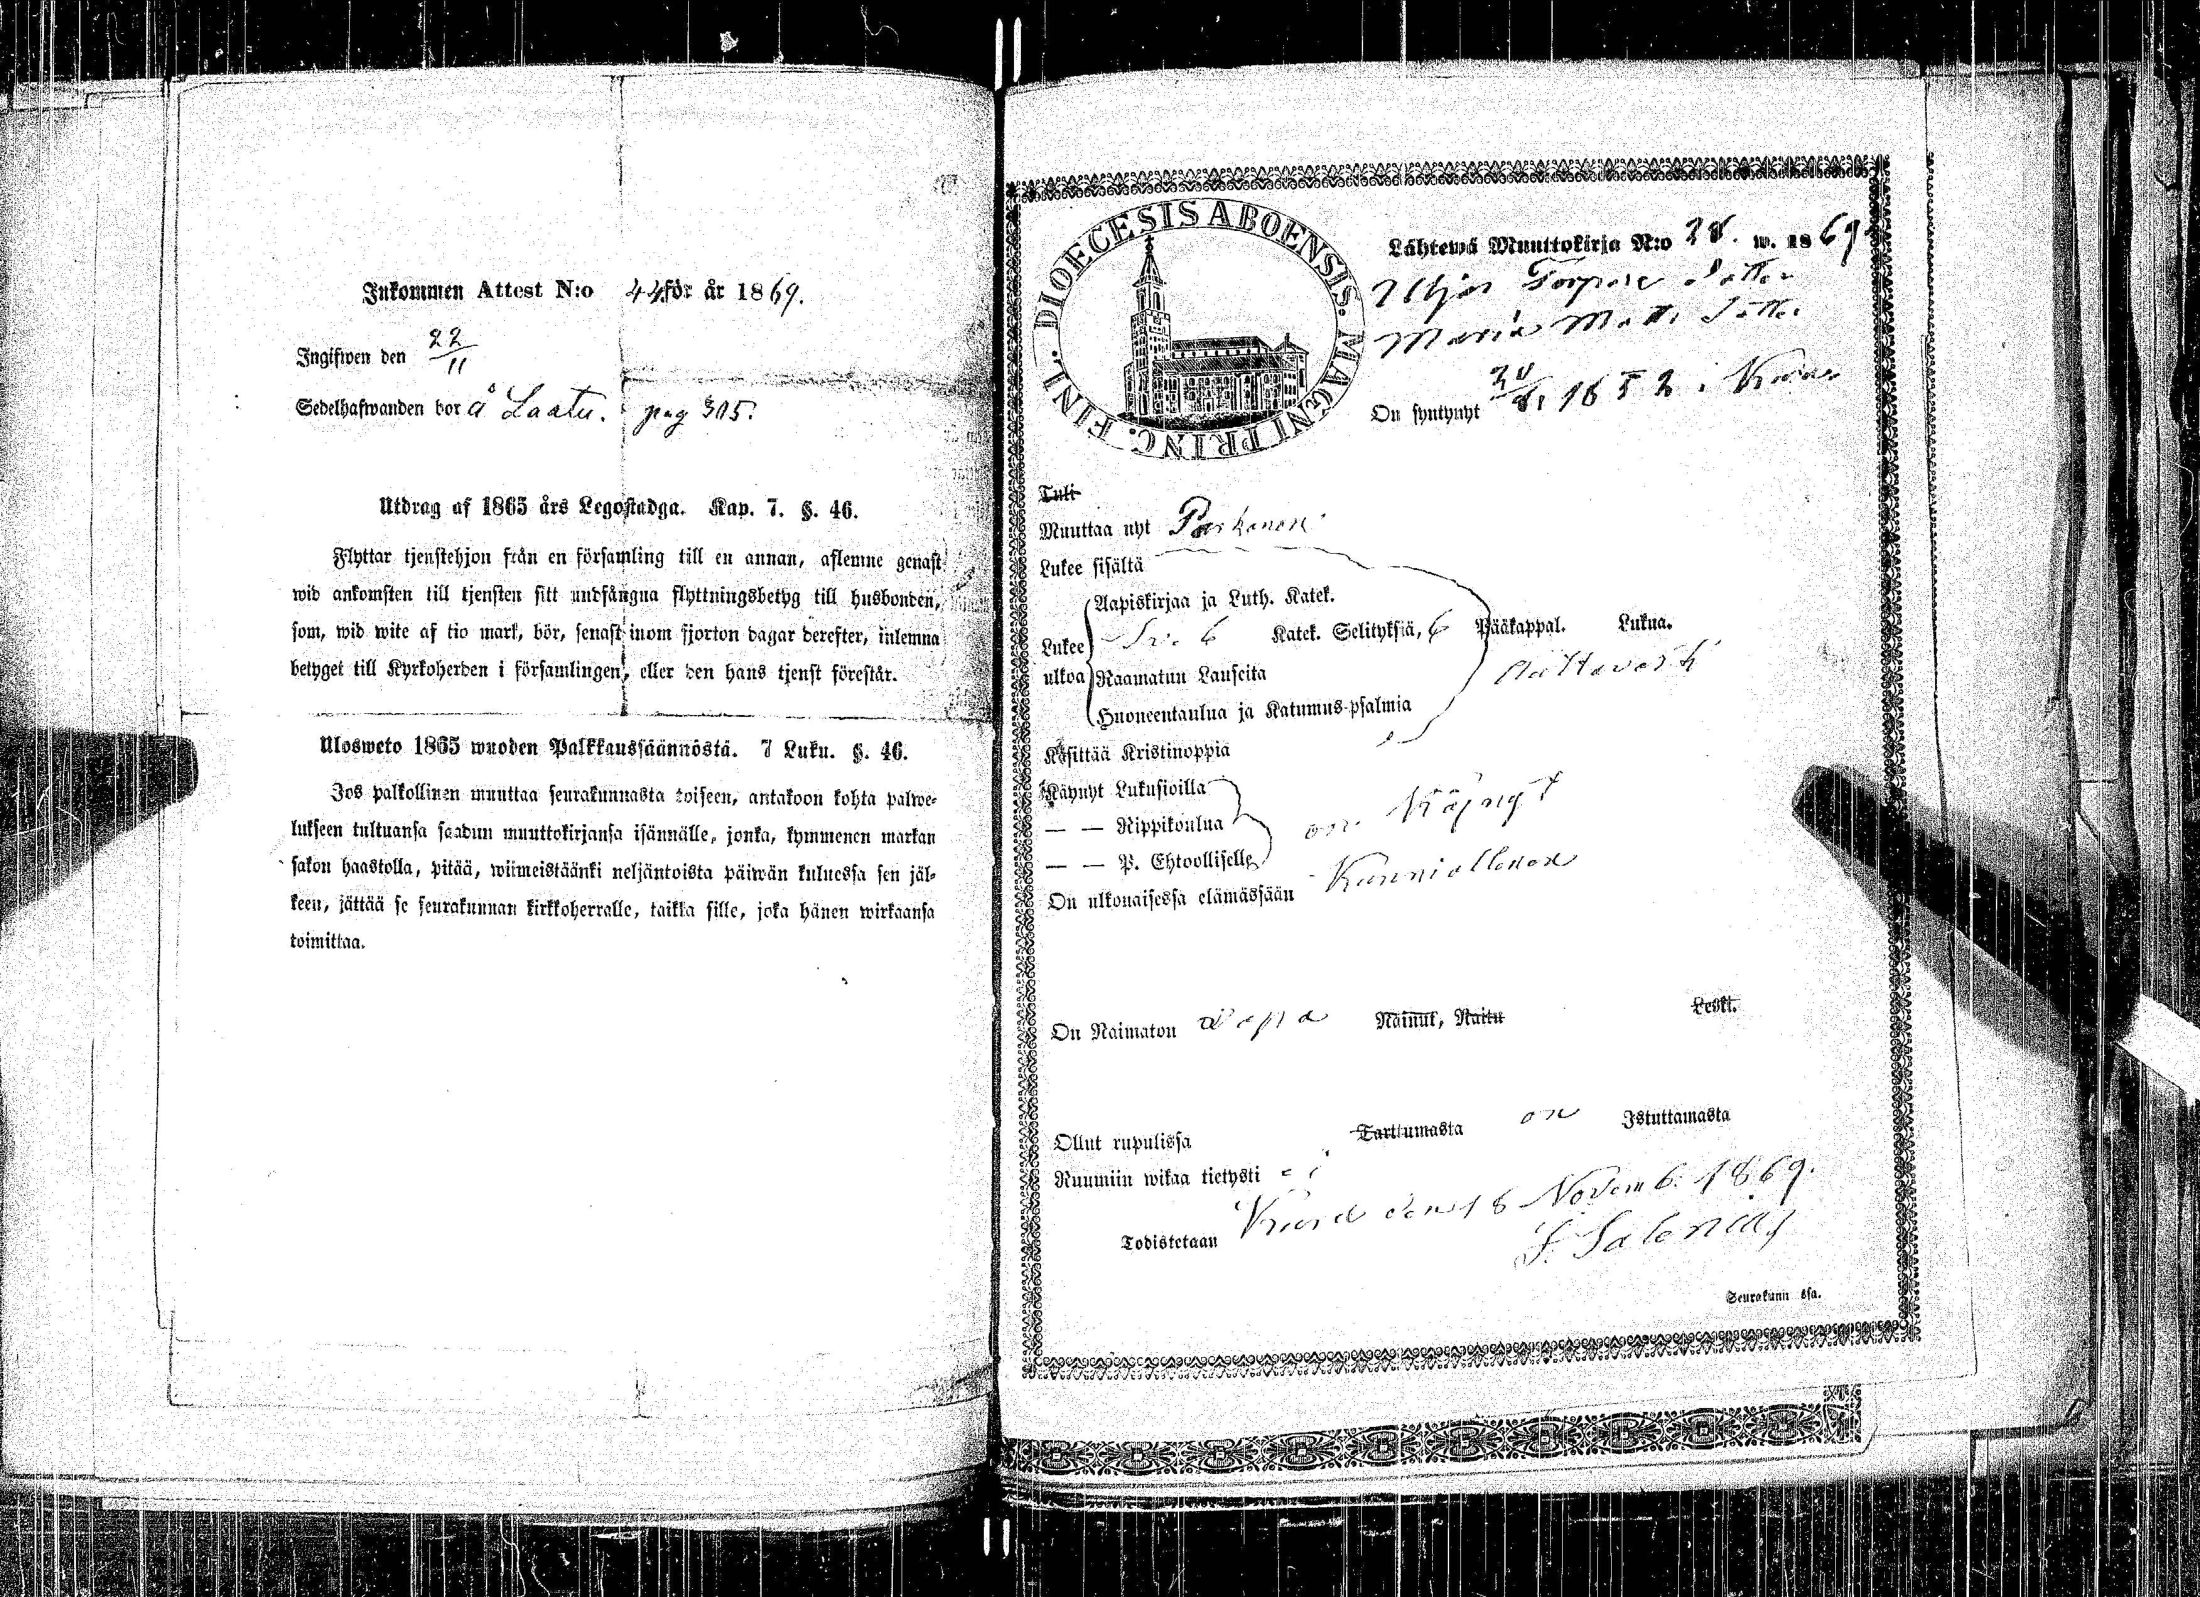 Inkommen Attest N:o 44 för år 1869.
Ingifwen den 22/11
Sedelhafwanden bor å Laatu. pag 305.
Utdrag af 1865 års Legostadga. Kap. 7. §. 46.
Flyttar tjenstehjon från en församling till en annan, aflemne genast
wid ankomsten till tjensten sitt undfångna flyttningsbetyg till husbonden,
som, wid wite af tio mark, bör, senast inom fjorton dagar derefter, inlemna
betyget till Kyrkoherden i församlingen, eller den hans tjenst förestår.
Ulosweto 1865 wuoden Palkkaussäännöstä. 7 Luku. §. 46.
Jos palkollinen muuttaa seurakunnasta toiseen, antakoon kohta palwe-
lukseen tultuansa saadun muuttokirjansa isännälle, jonka, kymmenen markan
sakon haastolla, pitää, wiimeistäänki neljäntoista päiwän kuluessa sen jäl-
keen, jättää se seurakunnan kirkkoherralle, taikka sille, joka hänen wirkaansa
toimittaa.
DIOECESIS ABOENSIS. MAGNI PRINC. FINL.
Lähtewä Muuttokirja N:o 28. w. 1869.
Maria Matts
On syntynyt 1852 i
Tuli
Muuttaa nyt Parkanon
Lukee sisältä
Aapiskirjaa ja Luth. Katek.
Lukee 6 Katek. Selityksiä, 6 Pääkappal. Lukua.
ulkoa Raamatun Lauseita
Huoneentaulua ja Katumus-psalmia
Käsittää Kristinoppia
Käynyt Lukusioilla
— — Rippikoulua on käynyt
— — P. Ehtoollisella
On ulkonaisessa elämässään Kunniallinen
On Naimaton wapa Nainut, Naitu Leski.
Ollut rupulissa Tarttumasta on Istuttamasta
Ruumiin wikaa tietysti ei
Todistetaan den 18 Novemb. 1869.
F. Salenius
Seurakunn ssa.